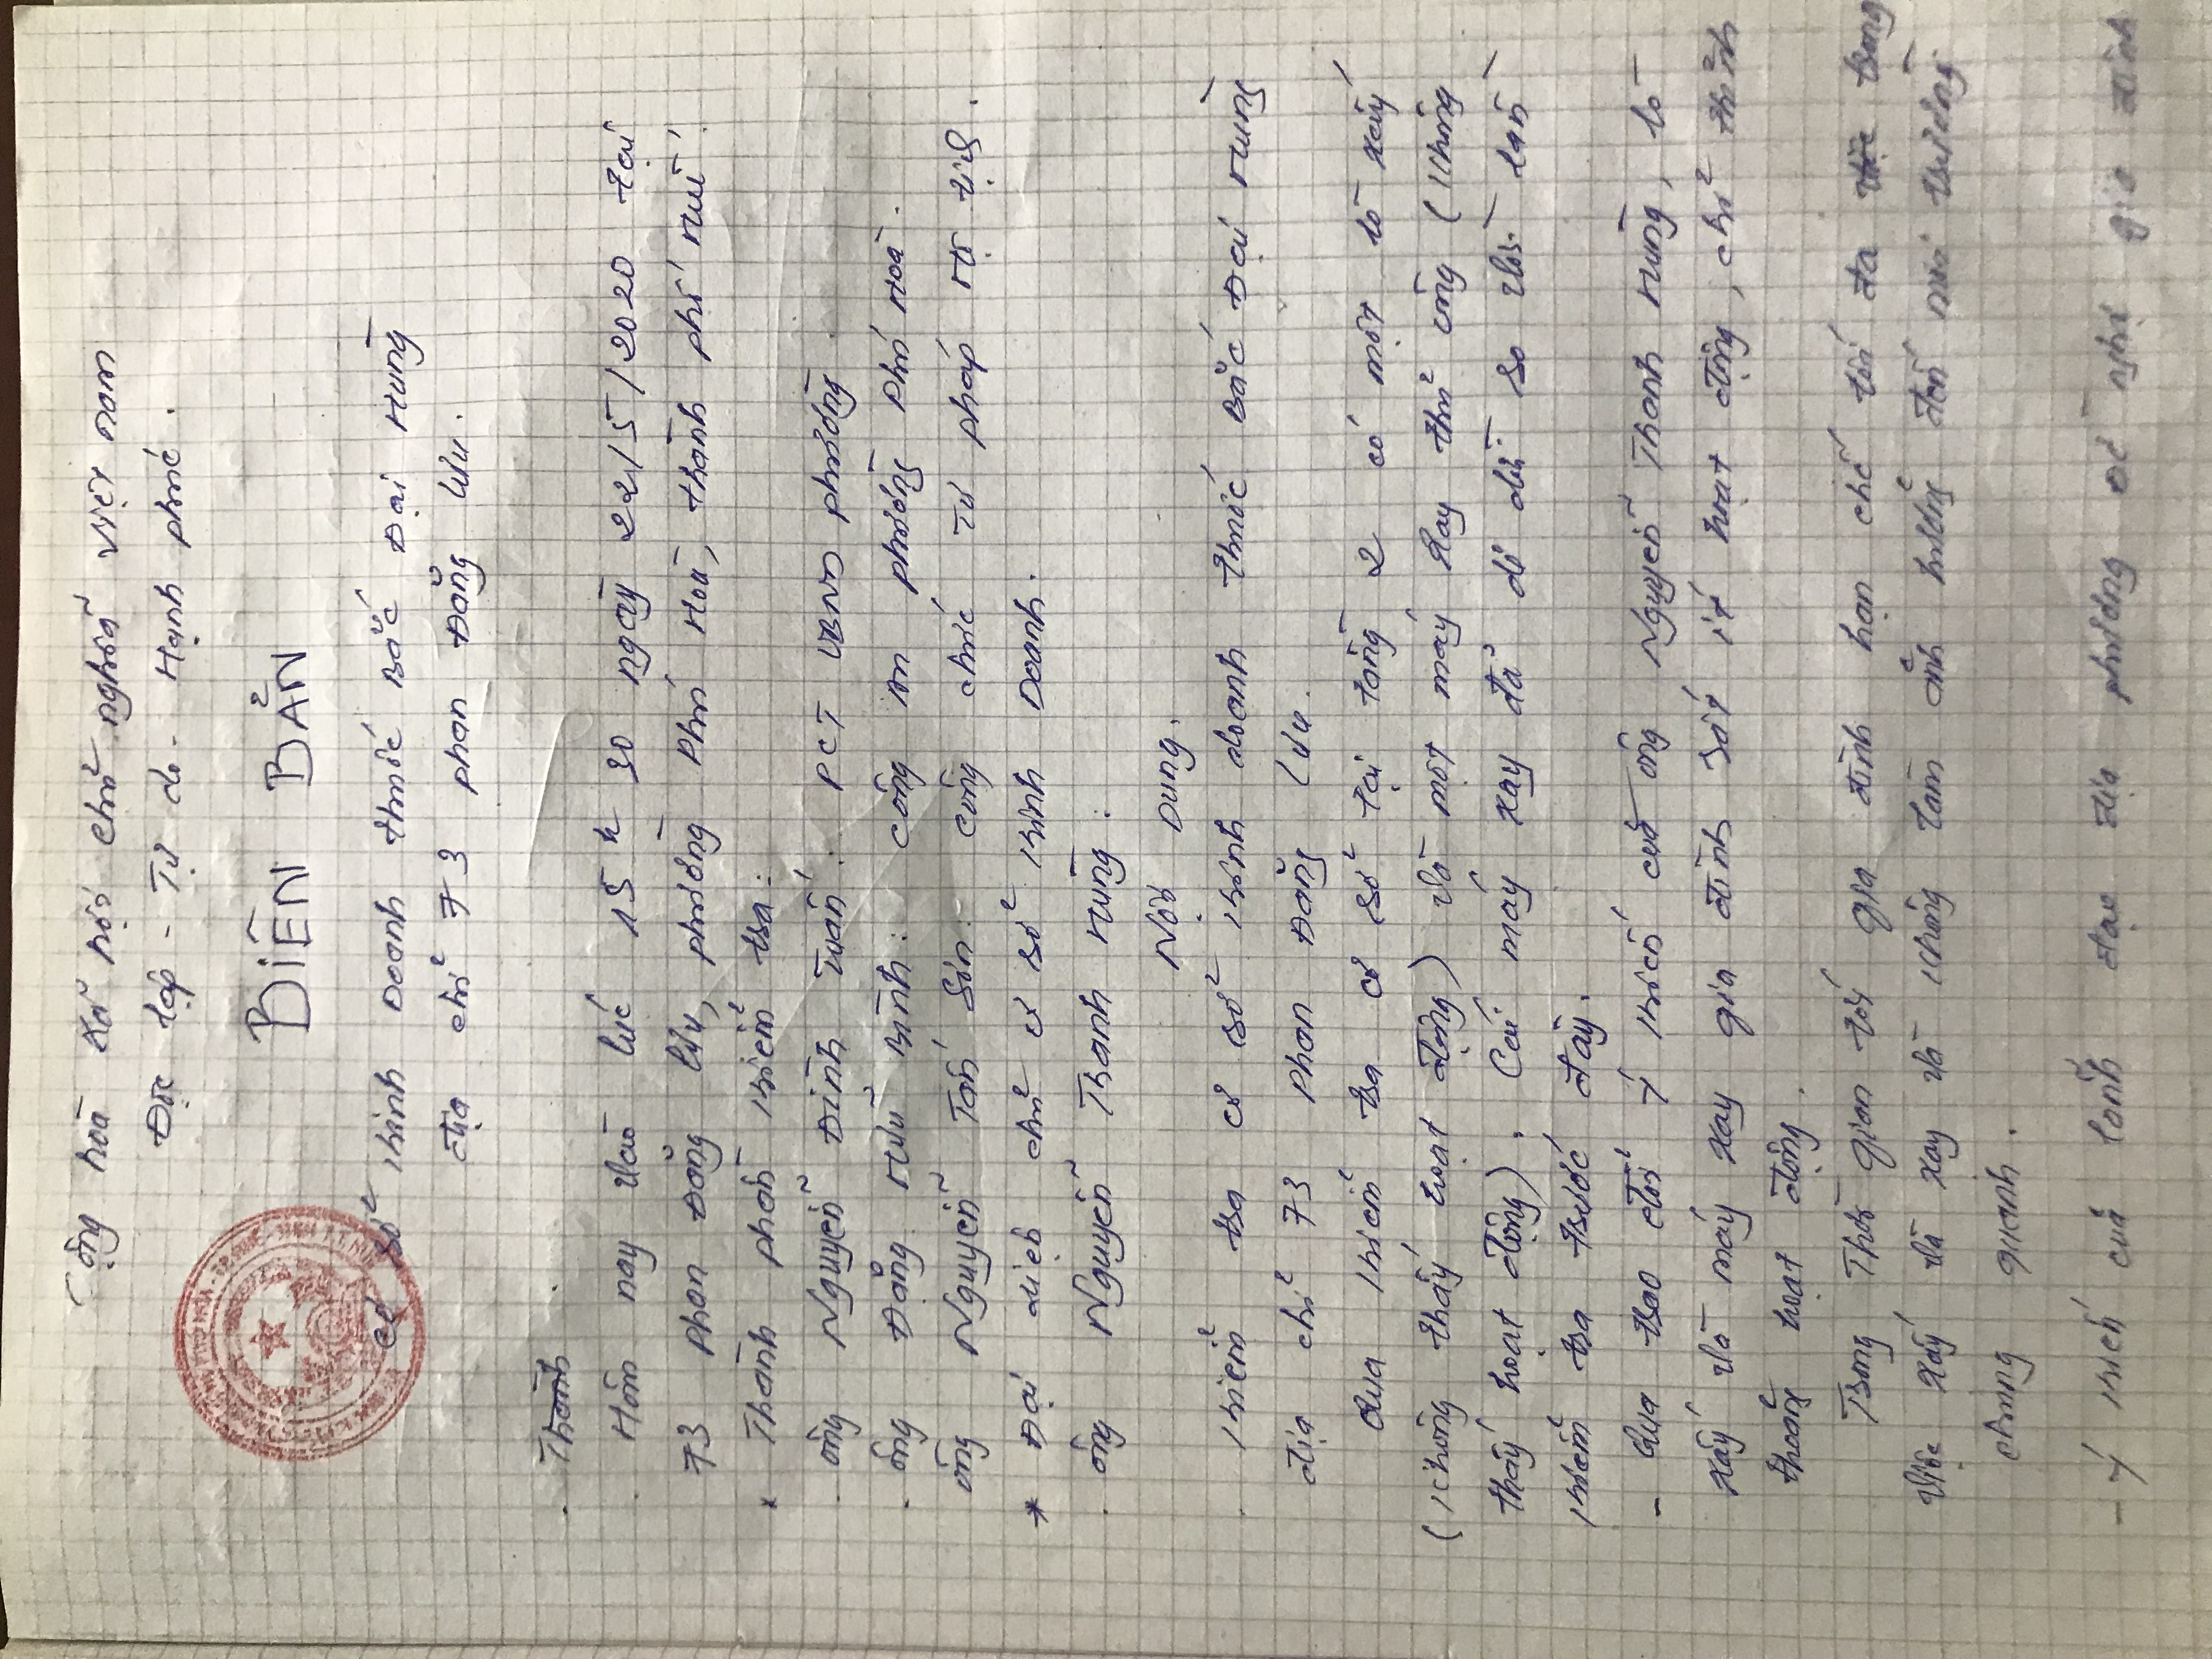 Cộng hoà xã hội chủ nghĩa việt nam
Độc lập - Tự do - Hạnh phúc.
BIÊN BẢN
cơ sở kinh Doanh thuốc Bắc Đại Hưng
địa chỉ 73 phan Đăng lưu.
. Thành
Hôm nay vào lúc 15h 30 ngày 22/5/2020 tại
73 phan Đăng lưu, phường Phú Hoà, thành phố Huế.
* Thành phần kiểm tra:
. ông Nguyễn Đình Tuấn: PCT UBND phường.
. ông Đặng Hữu Bình: công an phường Phú Hoà.
ông Nguyễn Tấn Sơn: công chức Tư pháp Hộ tịch.
* Đại diện chủ cơ sở kinh Doanh.
. ông Nguyễn Thanh Hùng:
Nội Dung.
. Kiểm tra cơ sở kinh doanh thuốc Bắc Đại Hưng
địa chỉ 73 Phan Đăng Lưu.
Qua kiểm tra cơ sở tại tầng 2 có một lò xấy
(không thấy hoạt động) và một máy xay thủ công (không
thấy hoạt động). Cái máy xay đã so với lần
kiểm tra trước đây.
- Qua trao đổi ý kiến của ông Nguyễn Thanh Hùng, lò
xấy và máy xay gia đình rất ít hoạt động, chỉ thỉnh
thoảng hoạt động.
Trong Thời gian tới gia đình hạn chế tối đa trong
việc xấy và xay và không làm ảnh hưởng đến môi trường
chung quanh.
- Ý kiến của lãnh đạo địa phương đề nghị gia đình